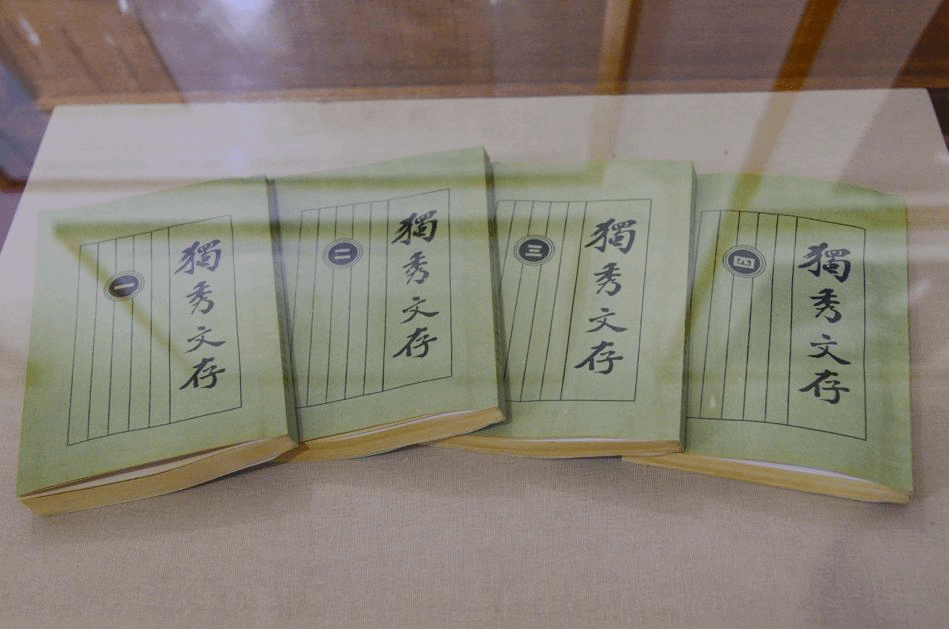 獨秀文存
一
獨秀文存
二
獨秀文存
三
獨秀文存
四